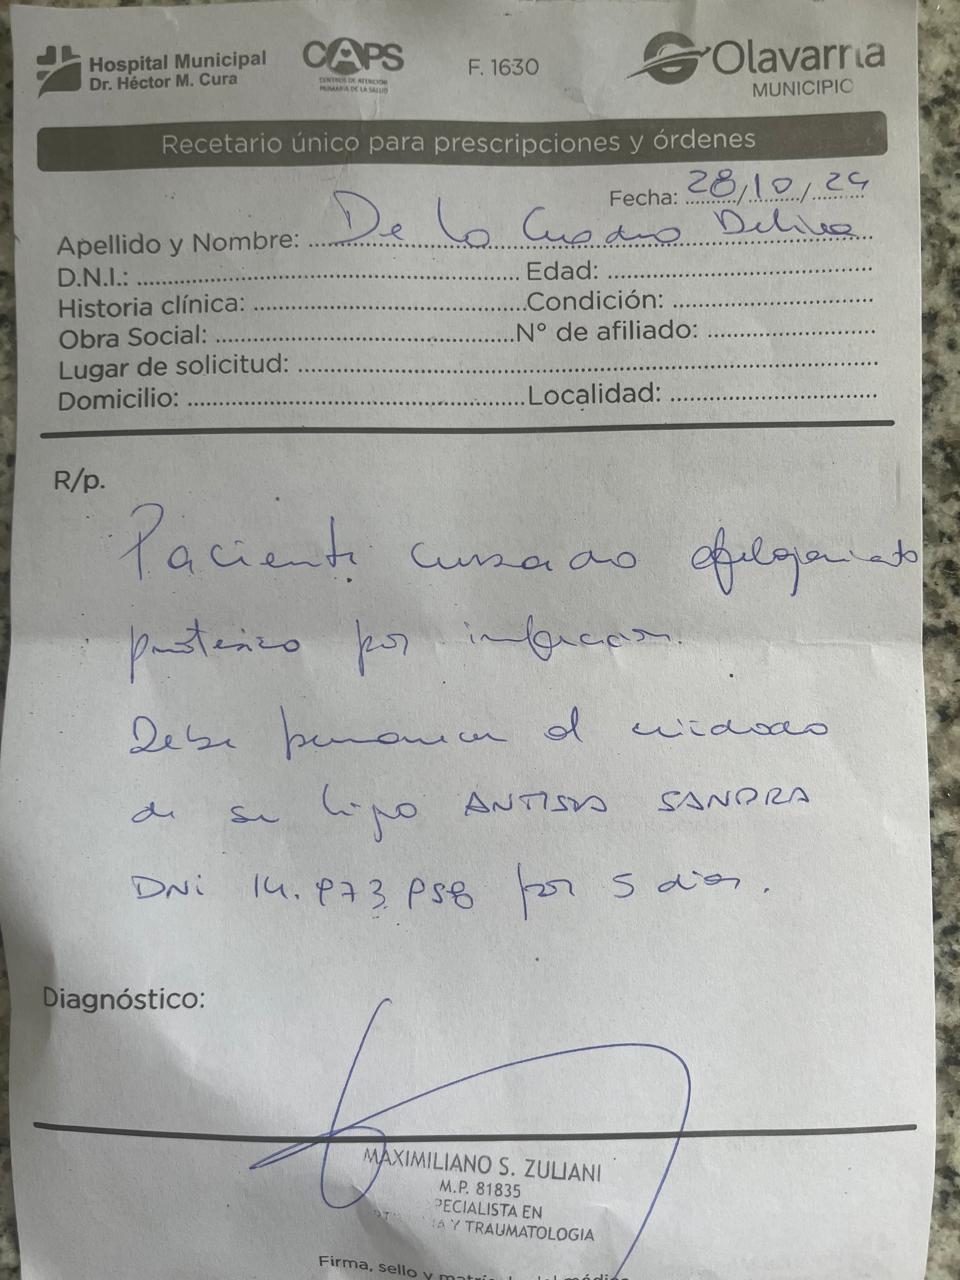 Hospital Municipal
Dr. Héctor M. Cura
CAPS
CENTROS DE ATENCIÓN
PRIMARIA DE LA SALUD
F. 1630
Olavarría
MUNICIPIO
Recetario único para prescripciones y órdenes
Fecha: 28/10/24
Apellido y Nombre: De la Cuadra Delina
D.N.I.: Edad:
Historia clínica: Condición:
Obra Social: N° de afiliado:
Lugar de solicitud:
Domicilio: Localidad:
R/p.
Paciente cursado aflojamiento
protesico por infeccion.
Debe permanecer al cuidado
de su hija SANDRA
DNi 14. por 5 dias.
Diagnóstico:
MAXIMILIANO S. ZULIANI
M.P. 81835
PECIALISTA EN
IA Y TRAUMATOLOGIA
Firma, sello y